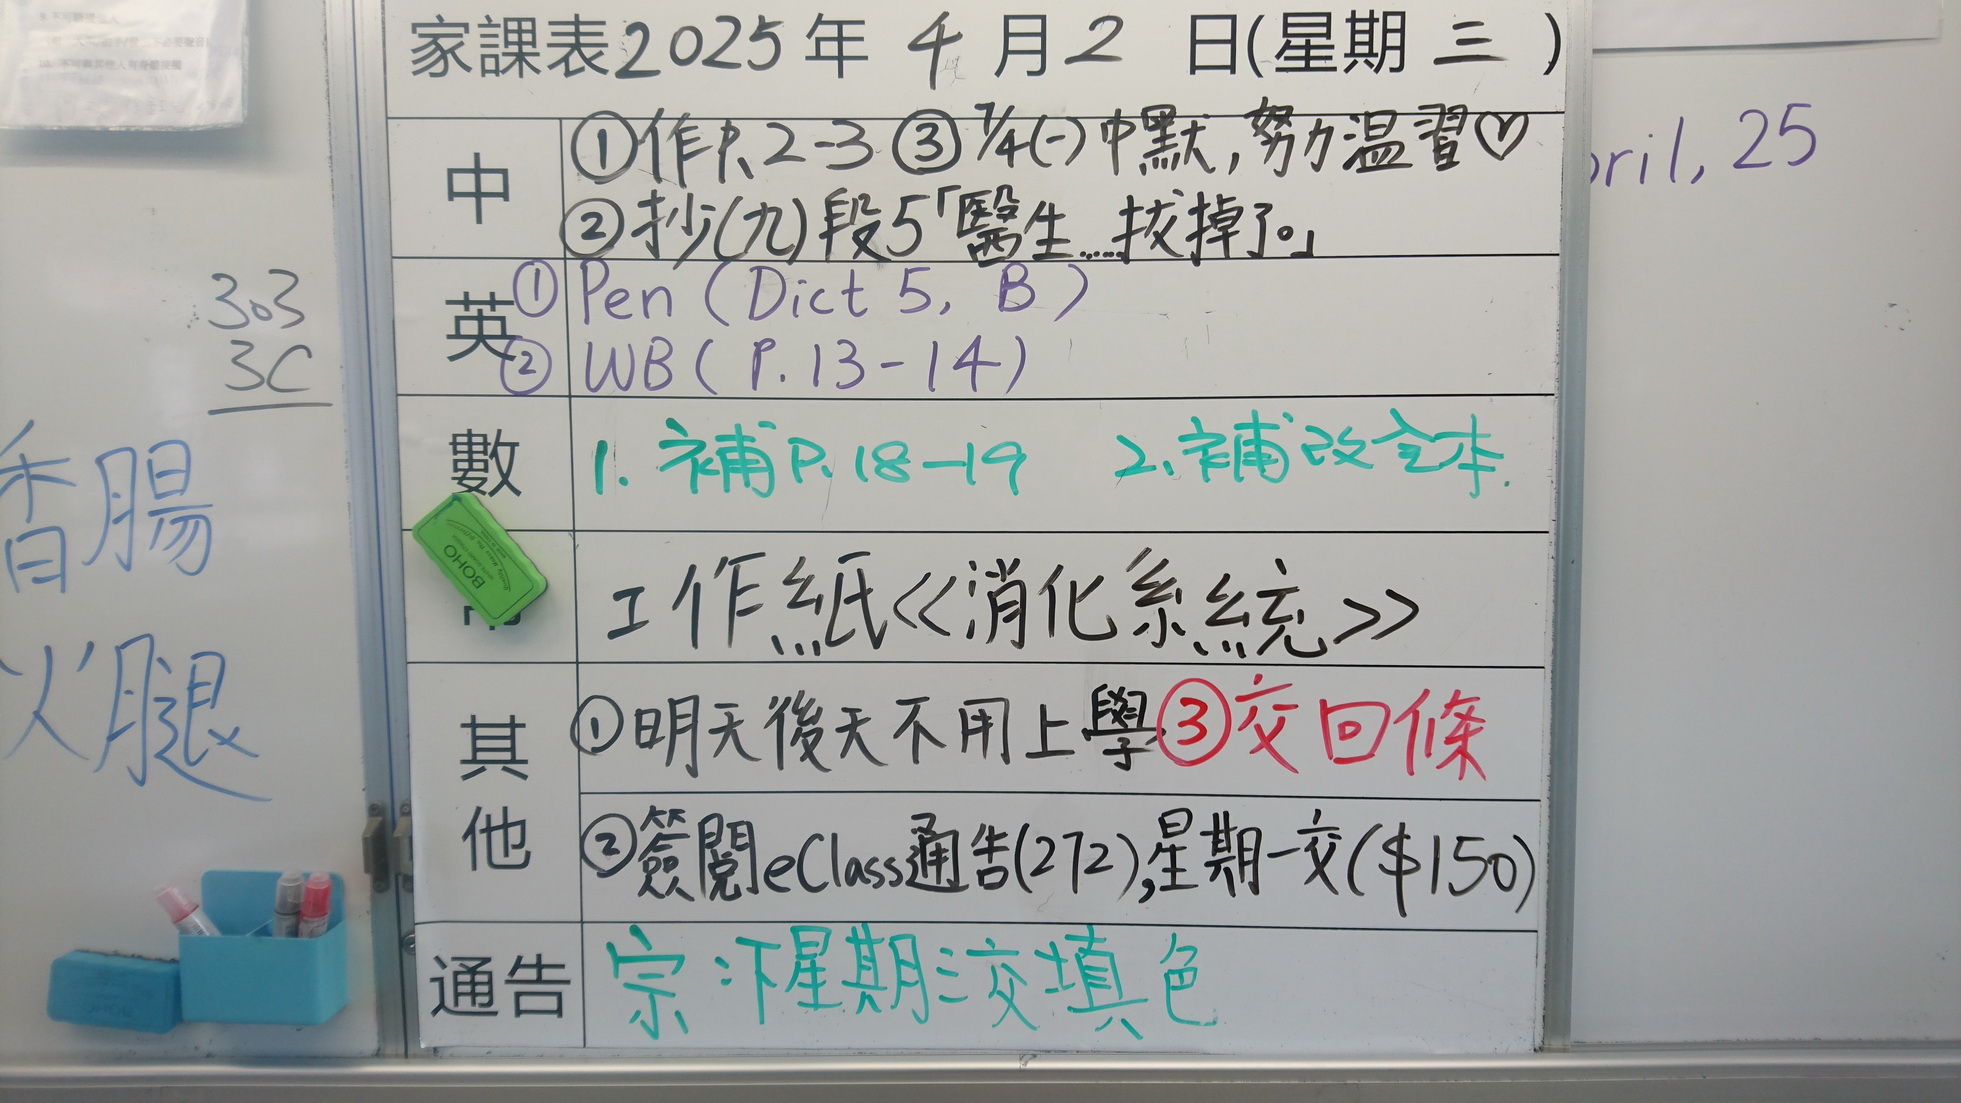 家課表2025年 4月2 日(星期 三 )
中
①作P.2-3 ③7/4(一)中默,努力温習♡
②抄(九)段5「醫生....拔掉了。」
英
①Pen (Dict 5, B)
②WB ( P.13-14)
數
1. 補P.18-19 2. 補改全本.
工作紙<<消化系統>>
其他
①明天後天不用上學 ③交回條
②簽閱eClass通告(272),星期一交($150)
通告
宗:下星期三交填色
303
3C
香腸
火腿
ril, 25
BOHO